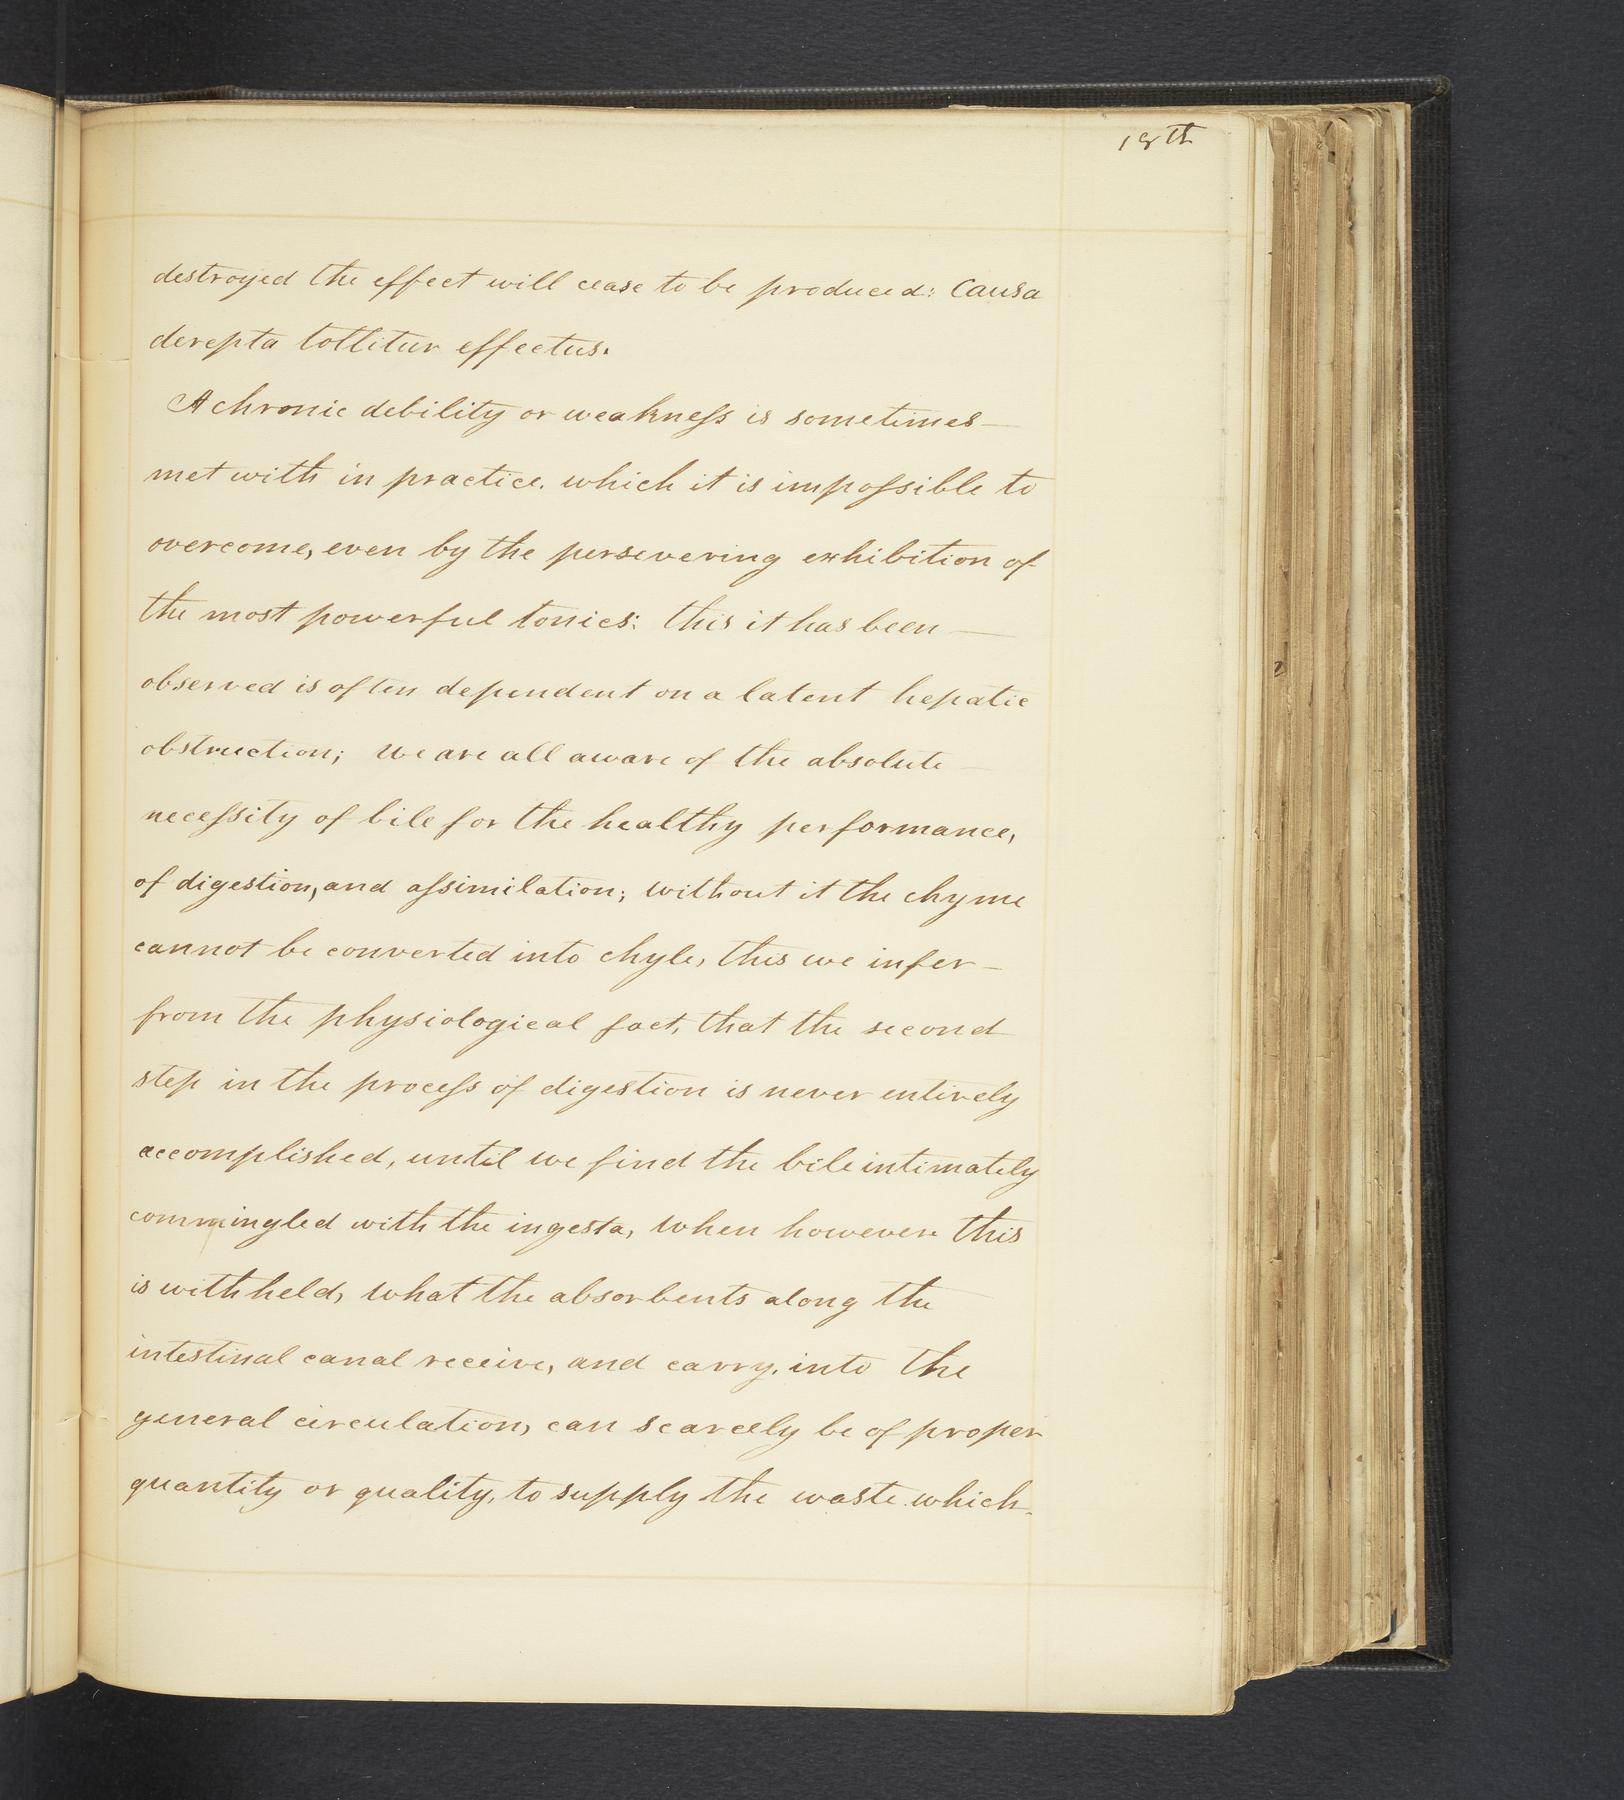 18th
destroyed the effect will cease to be produced: Causa
derepta tollitur effectus.
A chronic debility or weakness is sometimes—
met with in practice. which it is impossible to
overcome, even by the persevering exhibition of
the most powerful tonics: this it has been —
observed is often dependent on a latent hepatic
obstruction; we are all aware of the absolute —
necessity of bile for the healthy performance,
of digestion, and assimilation; without it the chyme
cannot be converted into chyle, this we infer —
from the physiological fact, that the second
step in the process of digestion is never entirely
accomplished, until we find the bile intimately
commingled with the ingesta, when however this
is withheld, what the absorbents along the
intestinal canal receive, and carry, into the
general circulation, can scarcely be of proper
quantity or quality, to supply the waste which